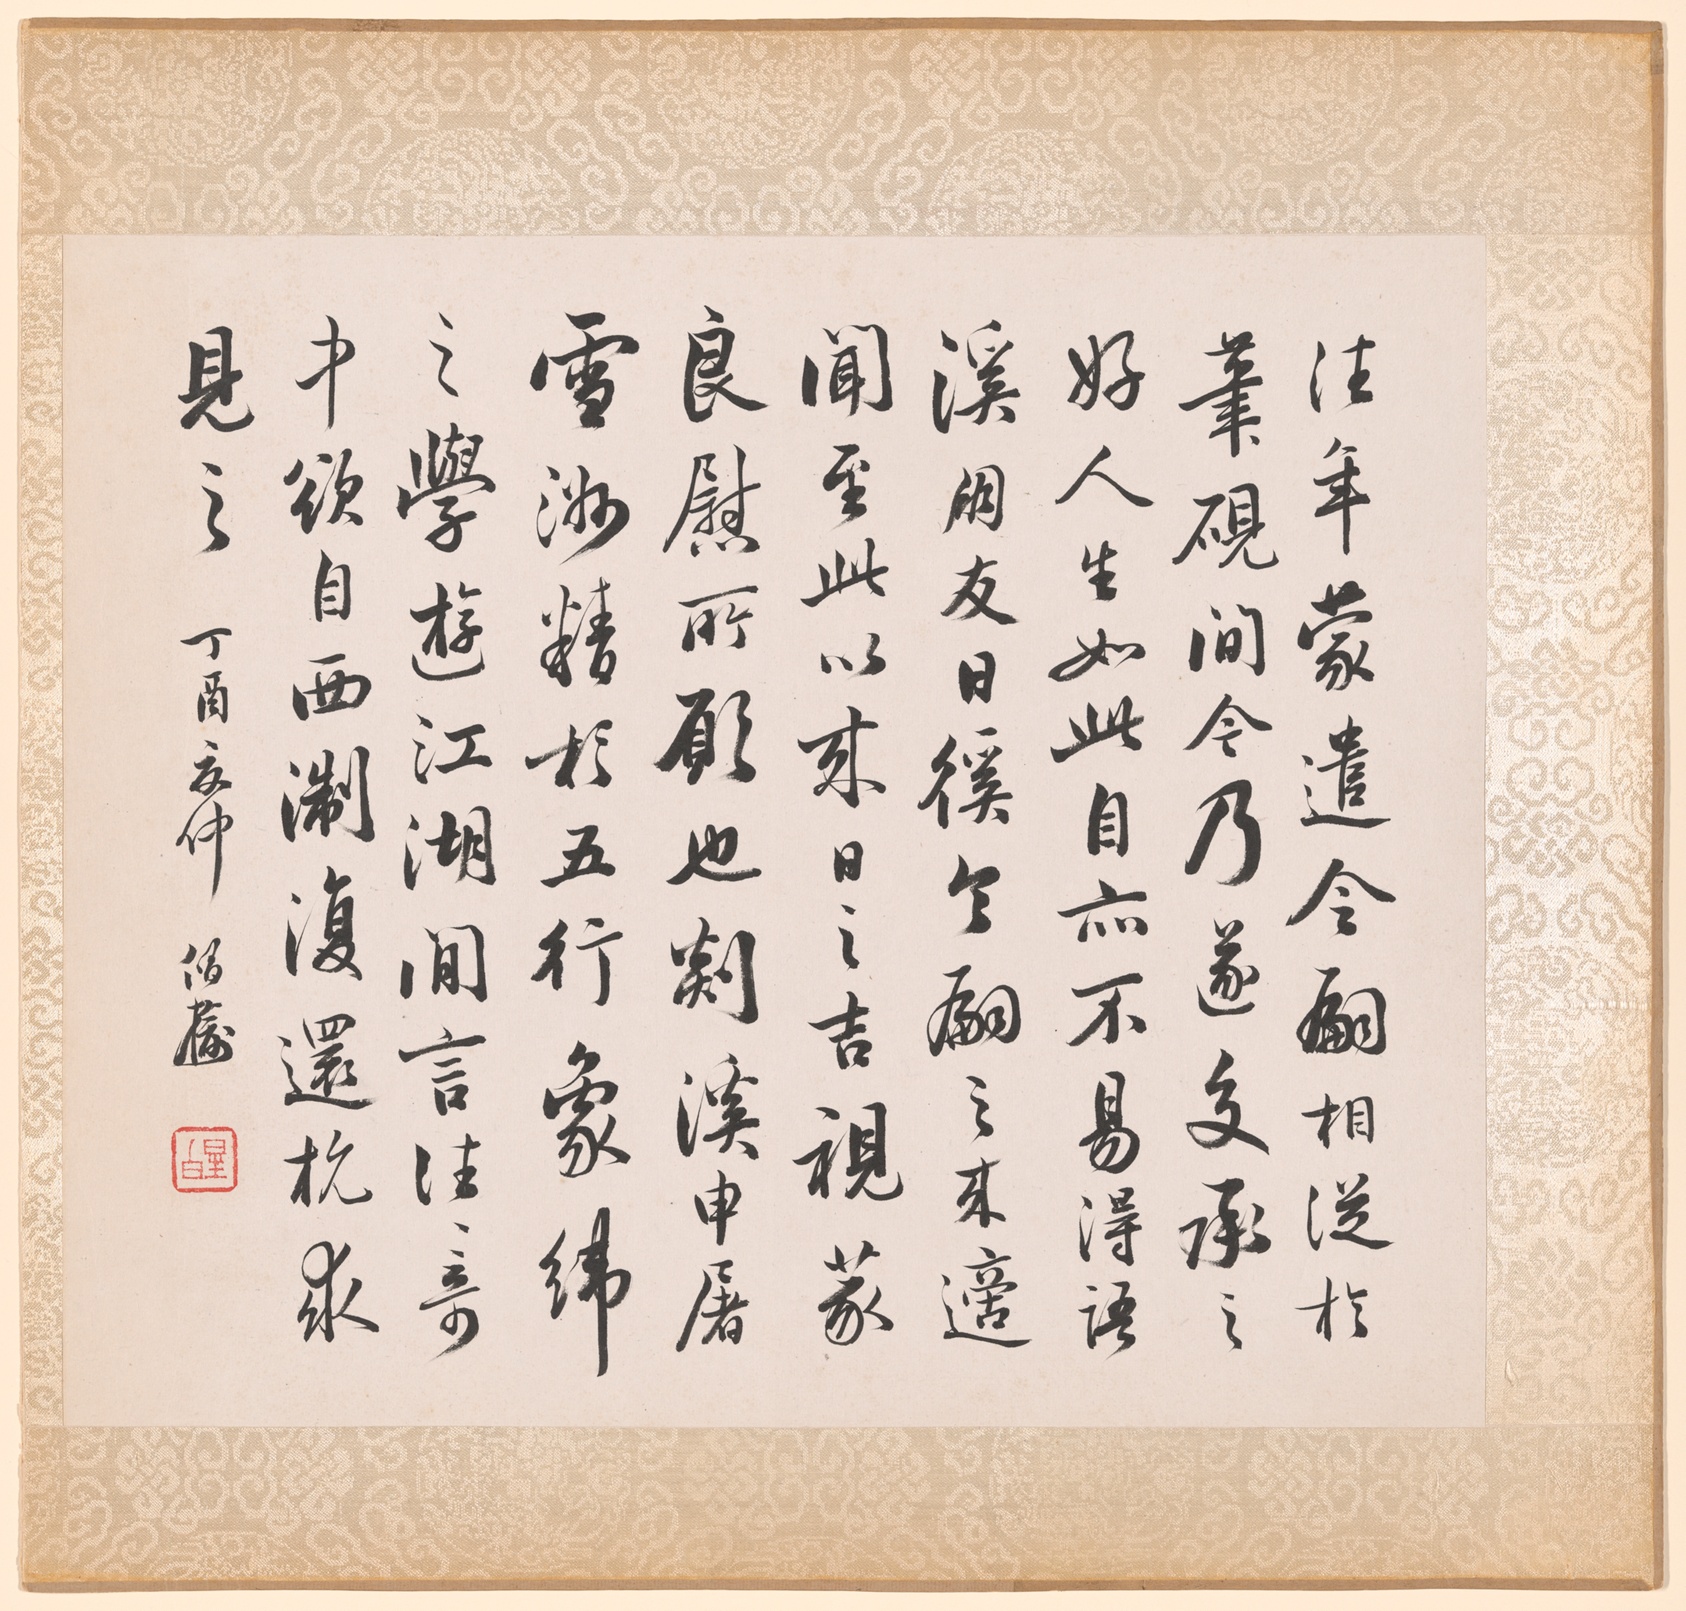 往年蒙遣令嗣相從於
筆硯間今乃遂交承之
好人生如此自亦不易得語
溪朋友日徯令嗣之來適
聞至此以來日之吉視篆
良慰所願也剡溪申屠
雪洲精於五行象緯
之學遊江湖間言往奇
中欲自西淛復還杭求
見之
丁酉夏仲